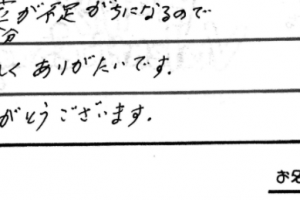 が不足がちになるので
くありがたいです.
がとうございます.
お